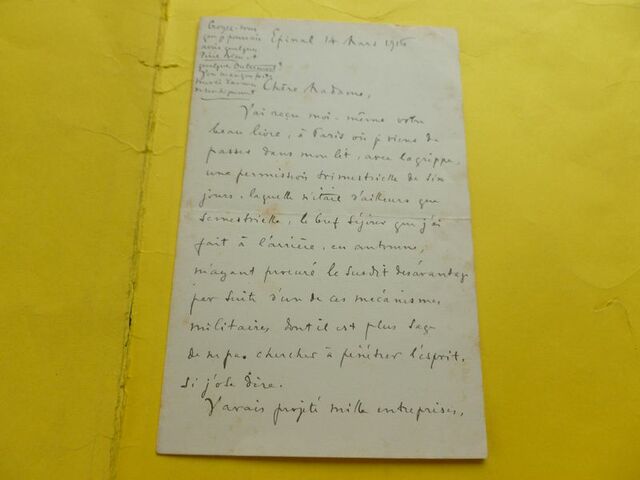 Croyez-vous
que je pourrais
avoir quelques
quelque
Epinal 14 Mars 1916
Chère Madame,
J'ai reçu moi-même votre
beau livre, à Paris où je viens de
passer dans mon lit, avec la grippe,
une permission trimestrielle de six
jours, laquelle n'était d'ailleurs que
semestrielle, le bref séjour que j'ai
fait à l'arrière, en automne,
m'ayant procuré le susdit désavantage
par suite d'un de ces mécanismes
militaires dont il est plus sage
de ne pas chercher à pénétrer l'esprit,
si j'ose dire.
J'avais projeté mille entreprises,